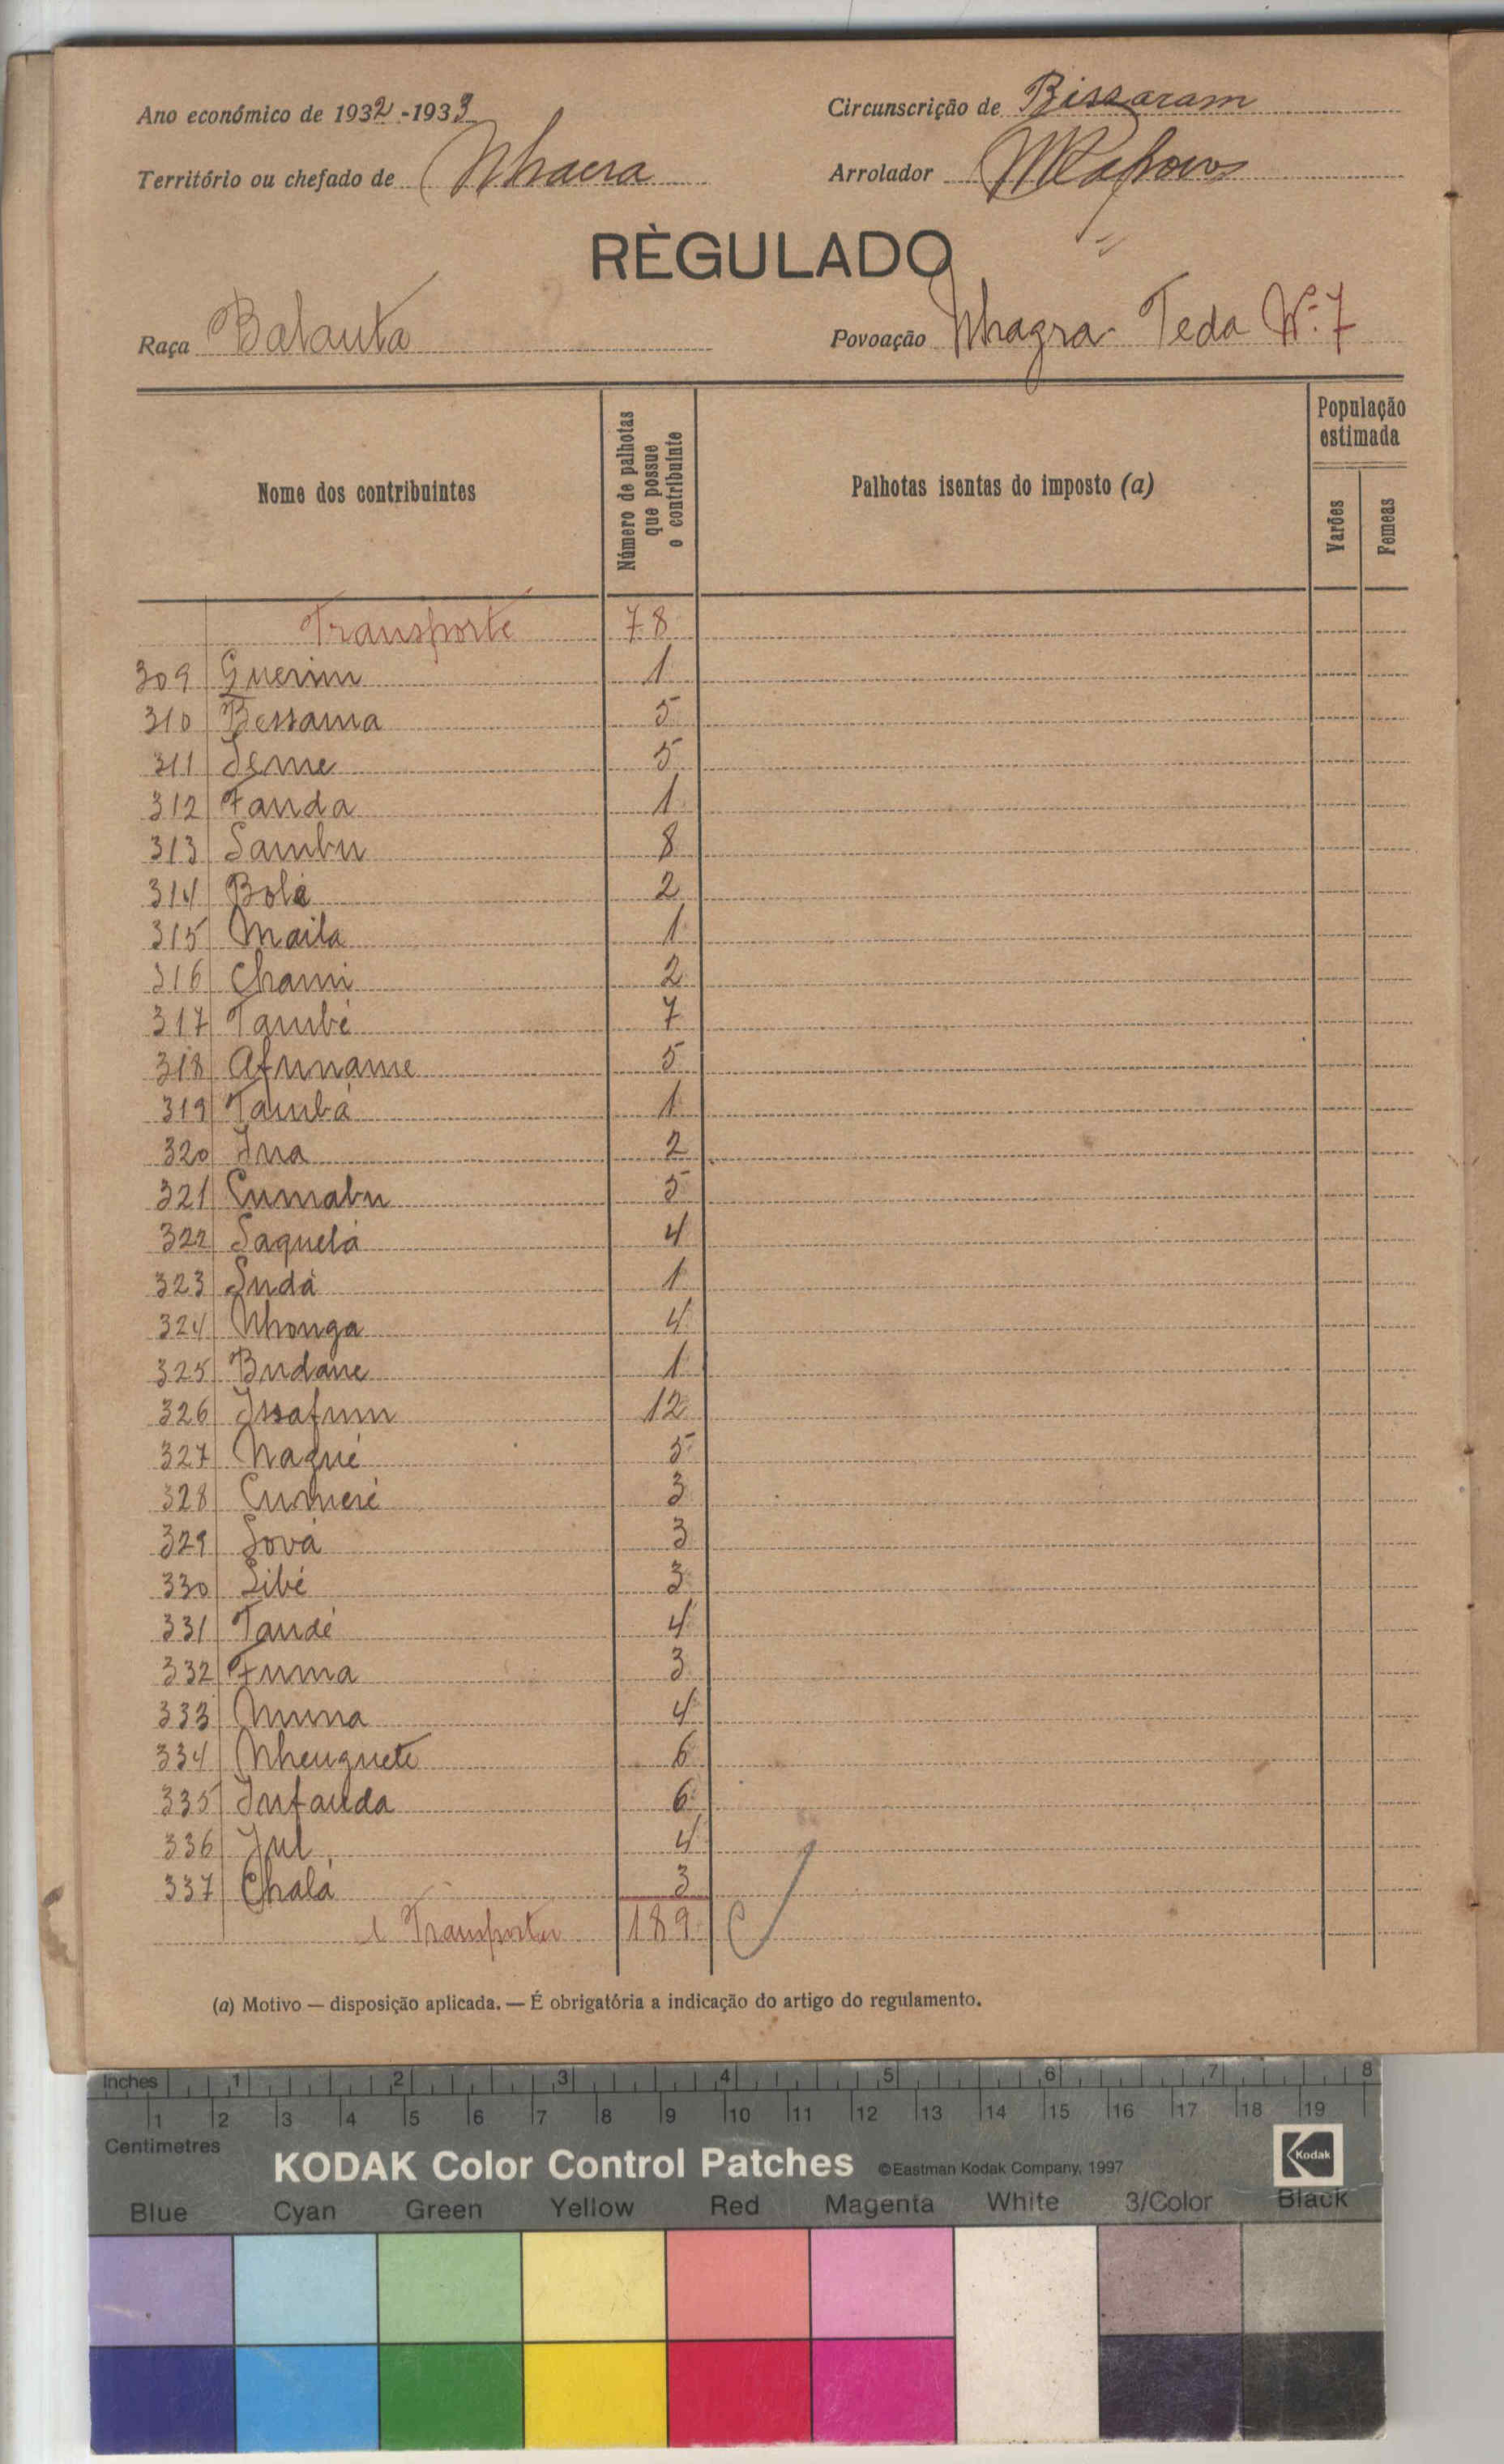 Ano económico de 1932-1933 Circunscrição de Bissaram
Território ou chefado de Nhacra Arrolador
RÈGULADO
Raça Balanta Povoação Nhagra Teda Nº 7
Nome dos contribuintes
Número de palhotas que possue o contribuinte
Palhotas isentas do imposto (a)
População estimada
Varões
Femeas
Transporte 78
309 Guerim 1
310 Bessama 5
311 Seme 5
312 Fanda 1
313 Sambu 8
314 Bolé 2
315 Maila 1
316 Chami 2
317 També 7
318 Afuname 5
319 Tambá 1
320 Ina 2
321 Cumabu 5
322 Saquelá 4
323 Sudá 1
324 Nhonga 4
325 Budane 1
326 Issafum 12
327 Naqué 5
328 Cumeré 3
329 Sová 3
330 Sibé 3
331 Tandé 4
332 Fuma 3
333 Muna 4
334 Nhenguete 6
335 Infanda 6
336 Jul 4
337 Chalá 3
A Transportar 189
(a) Motivo — disposição aplicada. — É obrigatória a indicação do artigo do regulamento.
Inches 1 2 3 4 5 6 7 8
1 2 3 4 5 6 7 8 9 10 11 12 13 14 15 16 17 18 19
Centimetres
KODAK Color Control Patches ©Eastman Kodak Company, 1997 Kodak
Blue Cyan Green Yellow Red Magenta White 3/Color Black